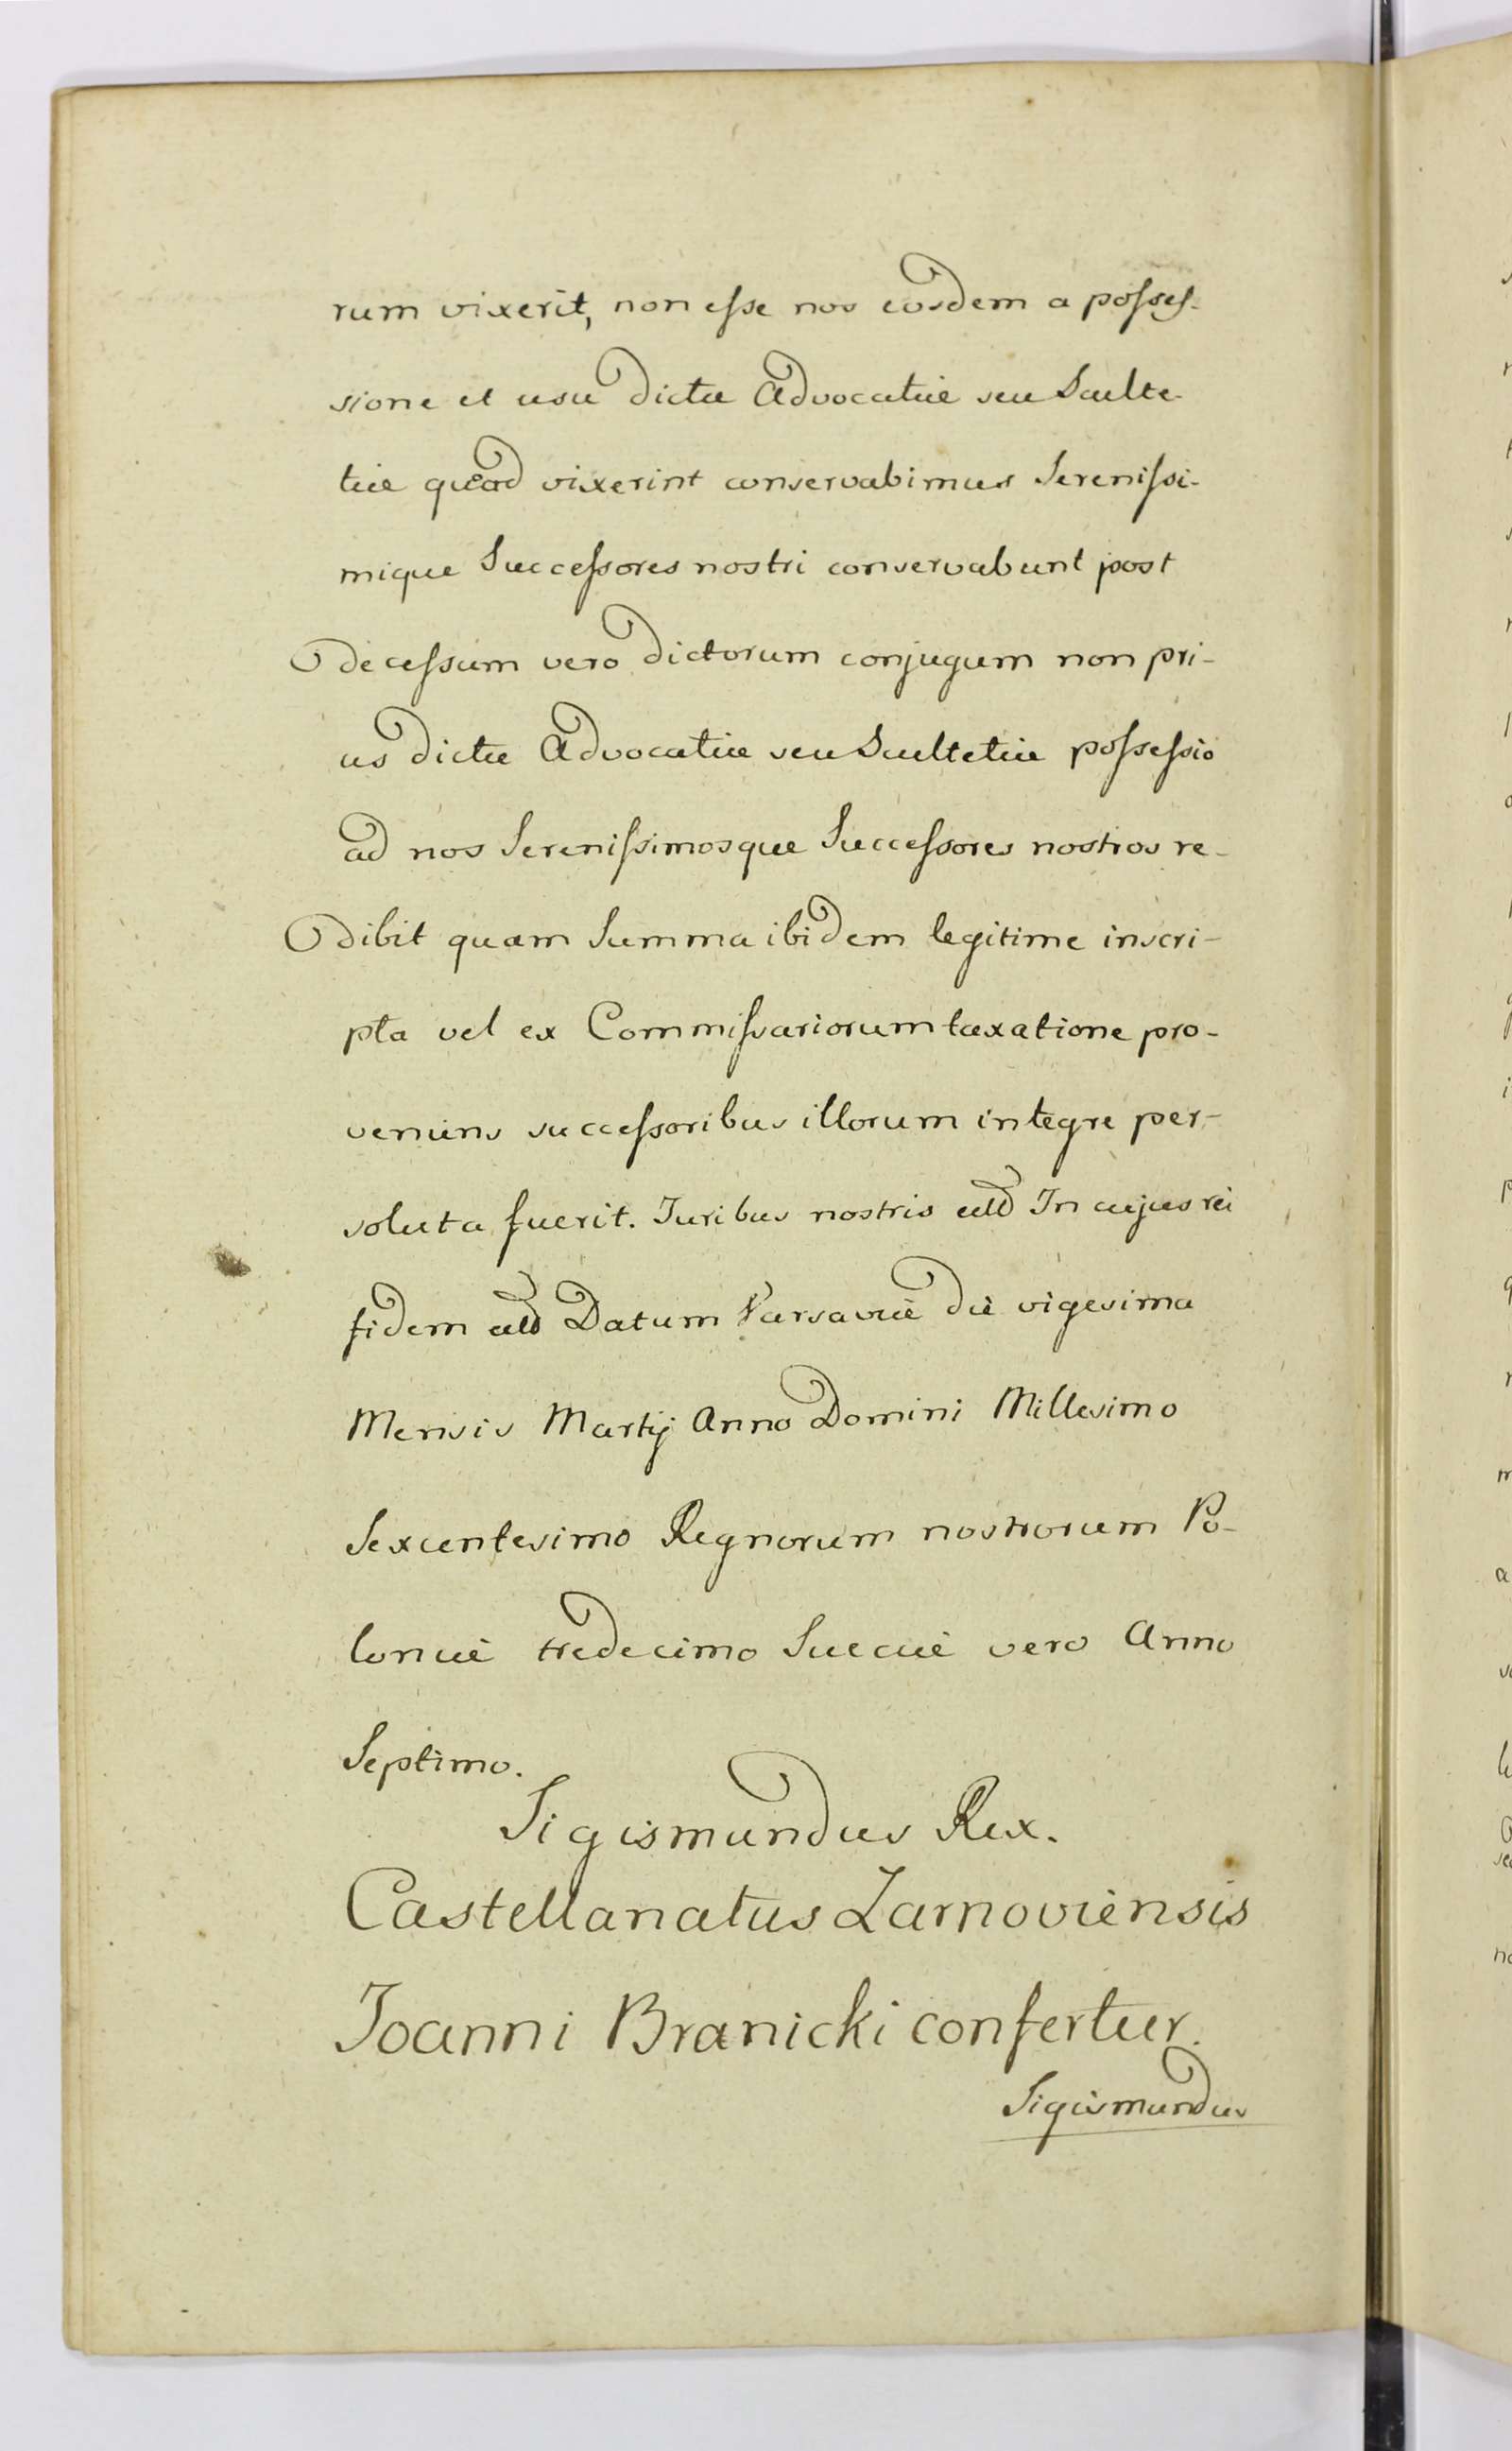 rum vixerit, non esse nos eosdem a posses-
sione et usu dictæ Advocatiæ seu Sculte-
tiæ quoad vixerint conservabimus Serenissi-
mique Successores nostri conservabunt post
decessum vero dictorum conjugum non pri-
us dictæ Advocatiæ seu Scultetiæ possessio
ad nos Serenissimosque Successores nostros re-
dibit quam Summa ibidem legitime inscri-
pta vel ex Commissariorum taxatione pro-
veniens successoribus illorum integre per-
soluta fuerit. Juribus nostris etc In cujus rei
fidem etc Datum Varsaviæ die vigesima
Mensis Martij Anno Domini Millesimo
Sexcentesimo Regnorum nostrorum Po-
loniæ tredecimo Sueciæ vero Anno
Septimo.
Sigismundus Rex.
Castellanatus Zarnoviensis
Joanni Branicki confertur.
Sigismundus